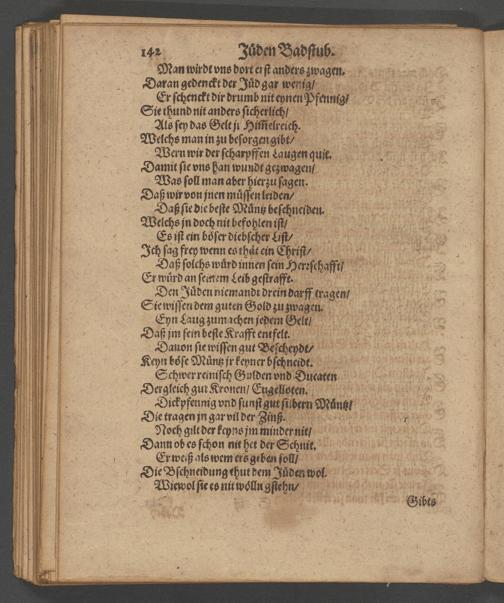 142 Jüden Badstub.
Man wirdt vns dort erst anders zwagen.
Daran gedenckt der Jüd gar wenig/
Er schenckt dir drumb nit eynen Pfennig/
Sie thund nit anders sicherlich/
Als sey das Gelt jr Him̃elreich.
Welchs man in zu besorgen gibt/
Wern wir der scharpffen Laugen quit.
Damit sie vns han wundt gezwagen/
Was soll man aber hierzu sagen.
Daß wir von jnen müssen leiden/
Daß sie die beste Müntz beschneiden.
Welchs jn doch nit befohlen ist/
Es ist ein böser diebscher List/
Ich sag frey wenn es thüt ein Christ/
Daß solchs würd innen sein Herrschafft/
Er würd an seinem Leib gestrafft.
Den Jüden niemandt drein darff tragen/
Sie wissen dem guten Gold zu zwagen.
Eyn Laug zumachen jedem Gelt/
Daß jm sein beste Krafft entfelt.
Dauon sie wissen gut Bescheydt/
Keyn böse Müntz jr keyner bschneidt.
Schwer reinisch Gulden vnd Ducaten
Dergleich gut Kronen/ Engelloten.
Dickpfennig vnd sunst gut silbern Müntz/
Die tragen jn gar vil der Zinß.
Noch gilt der keyns jm minder nit/
Dann ob es schon nit het der Schnit.
Er weiß als wem ers geben soll/
Die Bschneidung thut dem Jüden wol.
Wiewol sie es nit wölln gstehn/
Gibts